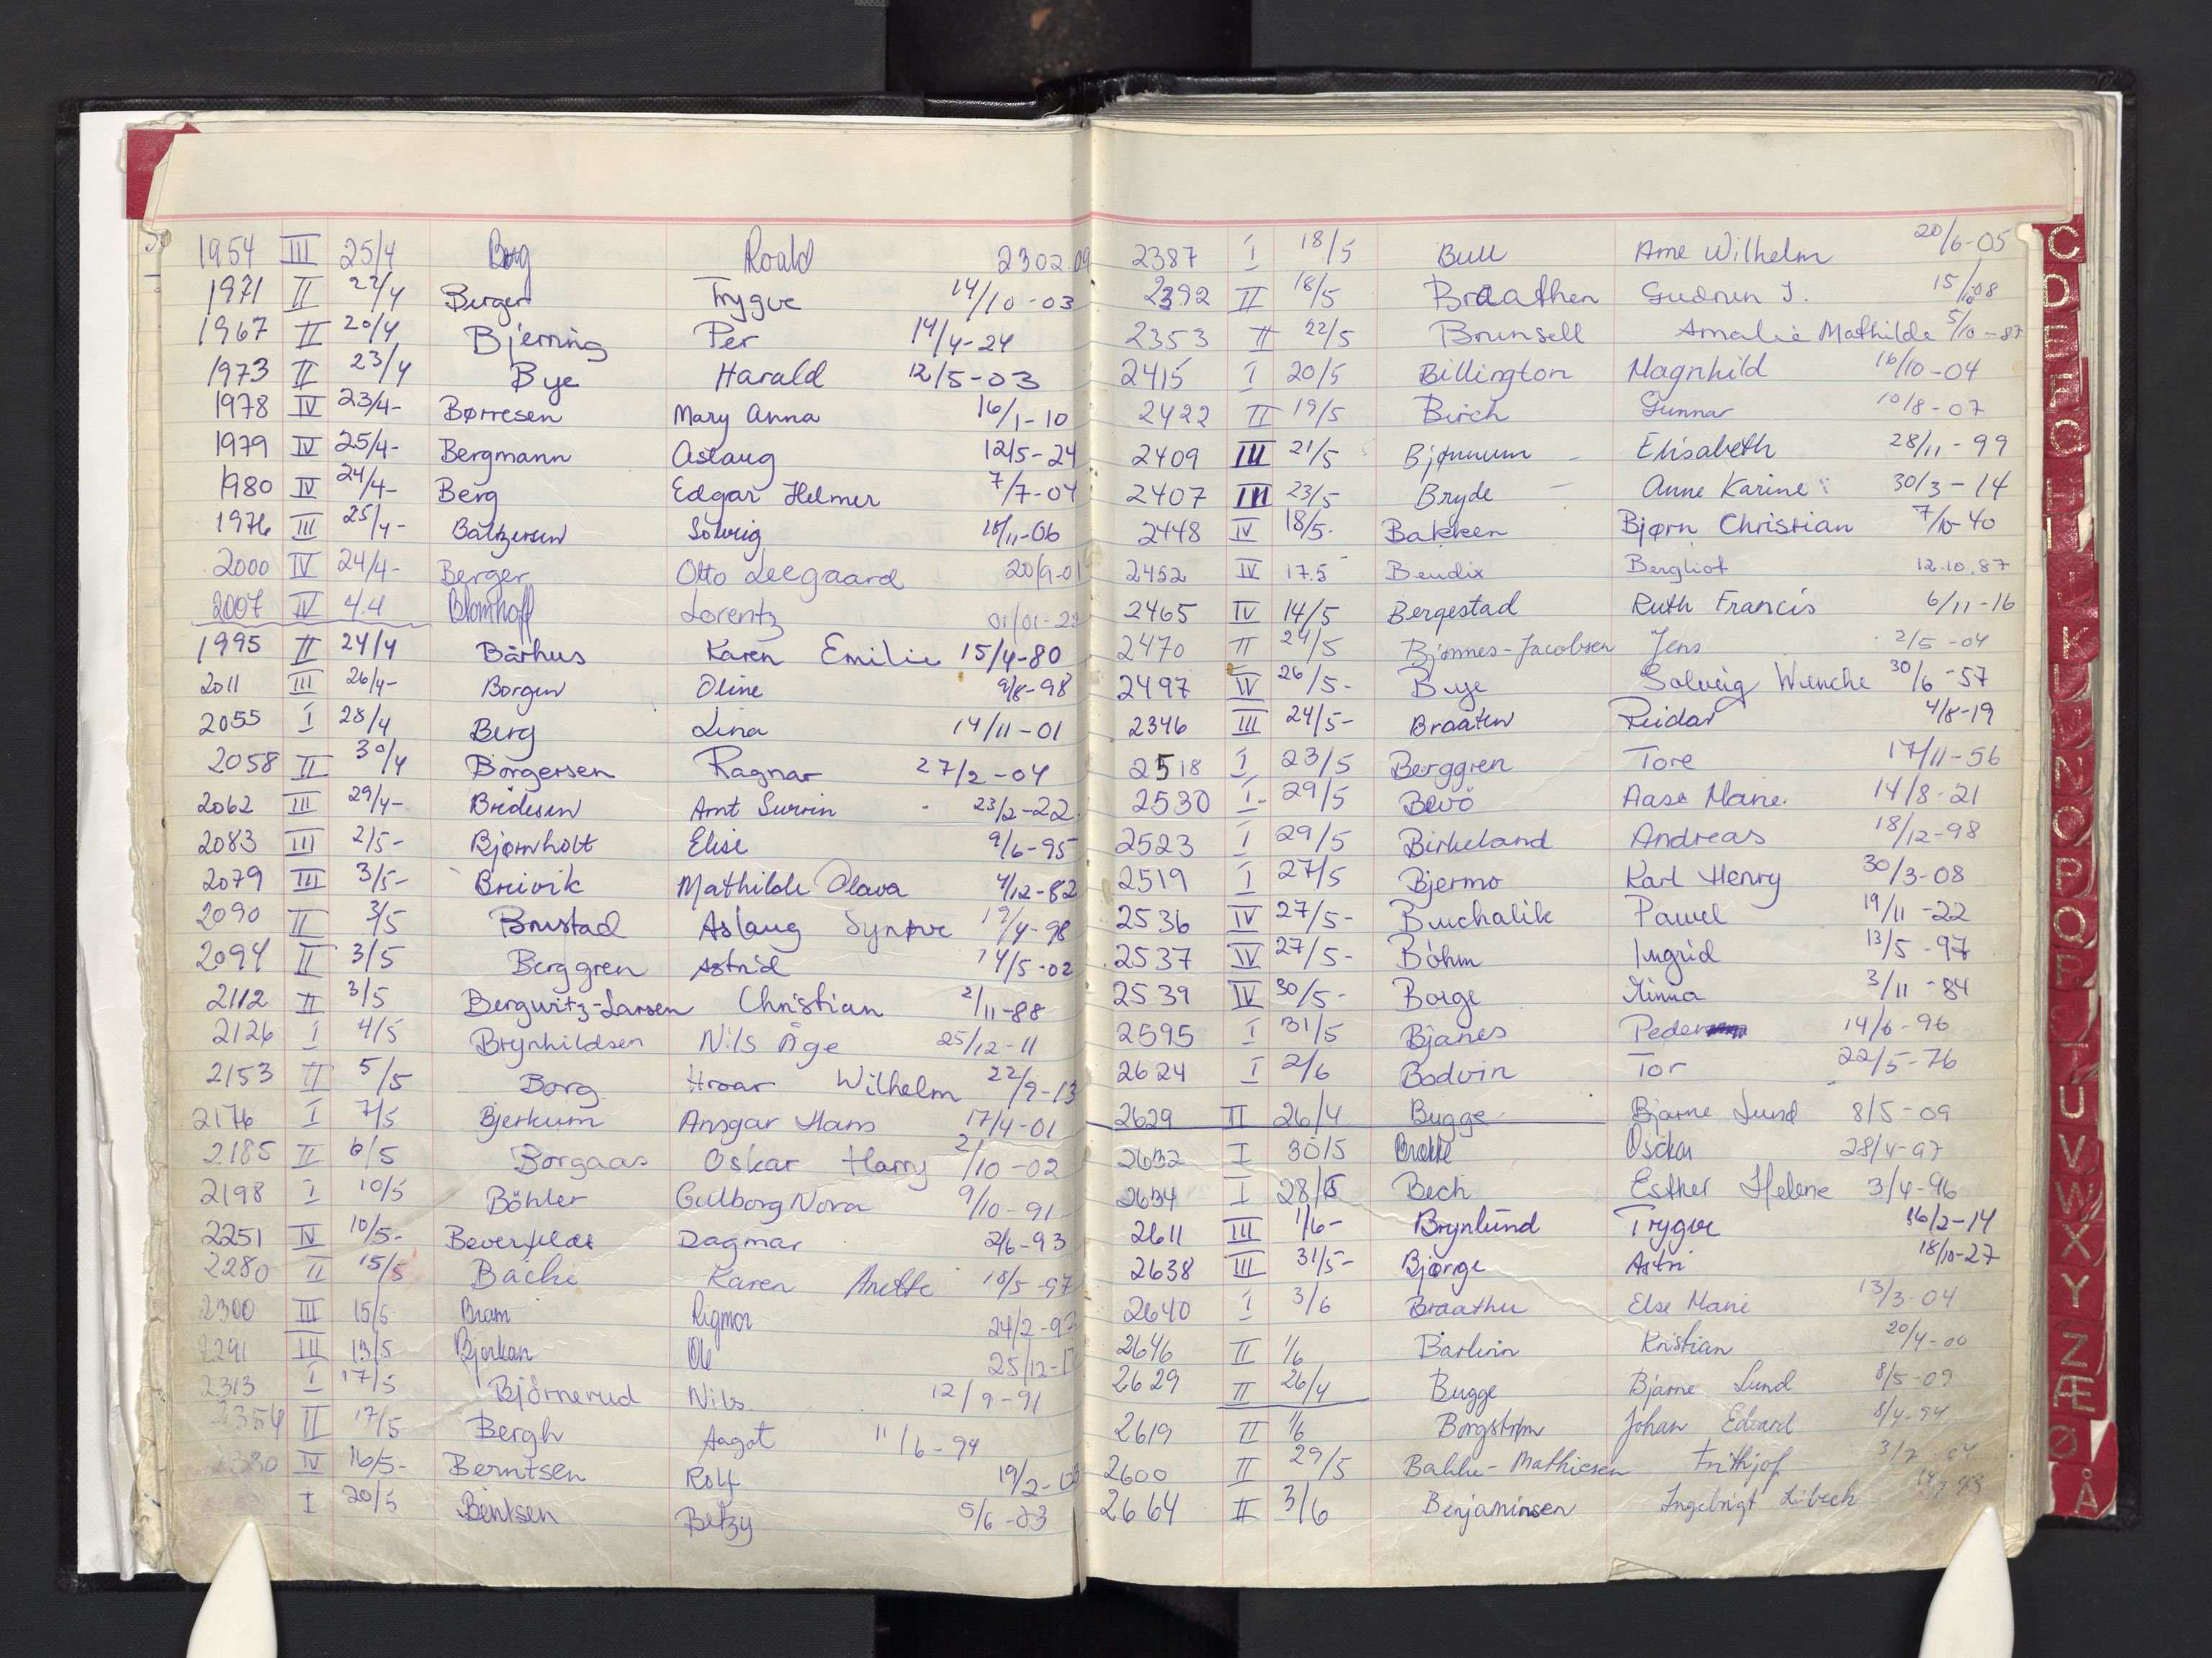 1954 III 25/4 Borg Roald 2302 09
1971 II 22/4 Berger Trygve 14/10-03
1967 II 20/4 Bjerning Per 14/4-24
1973 II 23/4 Bye Harald 12/5-03
1978 IV 23/4- Børresen Mary Anna 16/1-10
1979 IV 25/4- Bergmann Aslaug 12/5-24
1980 IV 24/4- Berg Edgar Helmer 7/7-04
1976 III 25/4- Baltzersen Solveig /11-06
2000 IV 24/4- Berger Otto Leegaard 20/9-01
2007 IV 4.4 Blomhoff Lorentz 01/01-22
1995 II 24/4 Bårhus Karen Emilie 15/4-80
2011 III 26/4- Borgen Oline 9/8-98
2055 I 28/4 Berg Lina 14/11-01
2058 II 30/4 Borgersen Ragnar 27/2-04
2062 III 29/4- Bredesen Arnt Severin 23/2-22
2083 III 2/5- Bjørnholt Elise 9/6-95
2079 III 3/5- Breivik Mathilde Olava 4/12-82
2090 II 3/5 Brustad Aslaug Synøve 19/4-98
2094 II 3/5 Berggren Astrid 14/5-02
2112 II 3/5 Bergwitz-Larsen Christian 2/11-88
2126 I 4/5 Brynhildsen Nils Åge 25/12-11
2153 II 5/5 Borg Hroar Wilhelm 22/9-13
2176 I 7/5 Bjerkum Ansgar Hans 17/4-01
2185 II 6/5 Borgaas Oskar Harry 21/10-02
2198 I 10/5 Böhler Gulborg Nora 9/10-91
2251 IV 10/5- Beverfeldt Dagmar 2/6-93
2280 II 15/5 Bache Karen Anette 18/5-97
2300 III 15/5 Bram Rigmor 24/2-92
2291 III 13/5 Bjorkan Ole 25/12-1
2313 I 17/5 Björnerud Nils 12/9-91
2354 II 17/5 Bergh Aagot 11/6-94
2380 IV 16/5- Berntsen Rolf 19/2-03
I 20/5 Bentsen Betzy 5/6-03
2387 I 18/5 Bull Arne Wilhelm 20/6-05
2392 II 18/5 Braathen Gudrun J. 15/10-08
2353 II 22/5 Brunsell Amalie Mathilde 5/10-87
2415 I 20/5 Billington Magnhild 16/10-04
2422 II 19/5 Birch Gunnar 10/8-07
2409 III 21/5 Bjørnum Elisabeth 28/11-99
2407 III 23/5 Bryde Anne Karine 30/3-14
2448 IV 18/5. Bakken Bjørn Christian 7/10-40
2452 IV 17.5 Bendix Bergliot 12.10.87
2465 IV 14/5 Bergestad Ruth Francis 6/11-16
2470 II 24/5 Bjønnes-Jacobsen Jens 2/5-04
2497 IV 26/5- Bye Solveig Wenche 30/6-57
2346 III 24/5- Braaten Reidar 4/8-19
2518 I 23/5 Berggren Tore 17/11-56
2530 I 29/5 Bevö Aase Marie 14/8-21
2523 I 29/5 Birkeland Andreas 18/12-98
2519 I 27/5 Bjermo Karl Henry 30/3-08
2536 IV 27/5- Buchalik Pawel 19/11-22
2537 IV 27/5- Böhm Ingrid 13/5-97
2539 IV 30/5- Borge Minna 3/11-84
2595 I 31/5 Bjanes Peder 14/6-96
2624 I 2/6 Bodvin Tor 22/5-76
2629 II 26/4 Bugge Bjarne Lund 8/5-09
2632 I 30/5 Brekke Oscar 28/4-97
2634 I 28/5 Bech Esther Helene 3/4-96
2611 III 1/6- Brynlund Trygve 16/2-14
2638 III 31/5- Bjørge Astri 18/10-27
2640 I 3/6 Braathen Else Marie 13/3-04
2646 II 1/6 Barlinn Kristian 20/4-00
2629 II 26/4 Bugge Bjarne Lund 8/5-09
2619 II 1/6 Borgstrøm Johan Edvard 8/4-94
2600 II 29/5 Bakke-Mathiesen Frithjof 3/7-04
2664 II 3/6 Benjaminsen Ingebrigt Libech
C
D
E
F
G
K
N
O
P
Q
R
T
U
V
W
X
Y
Z
Æ
Ø
Å